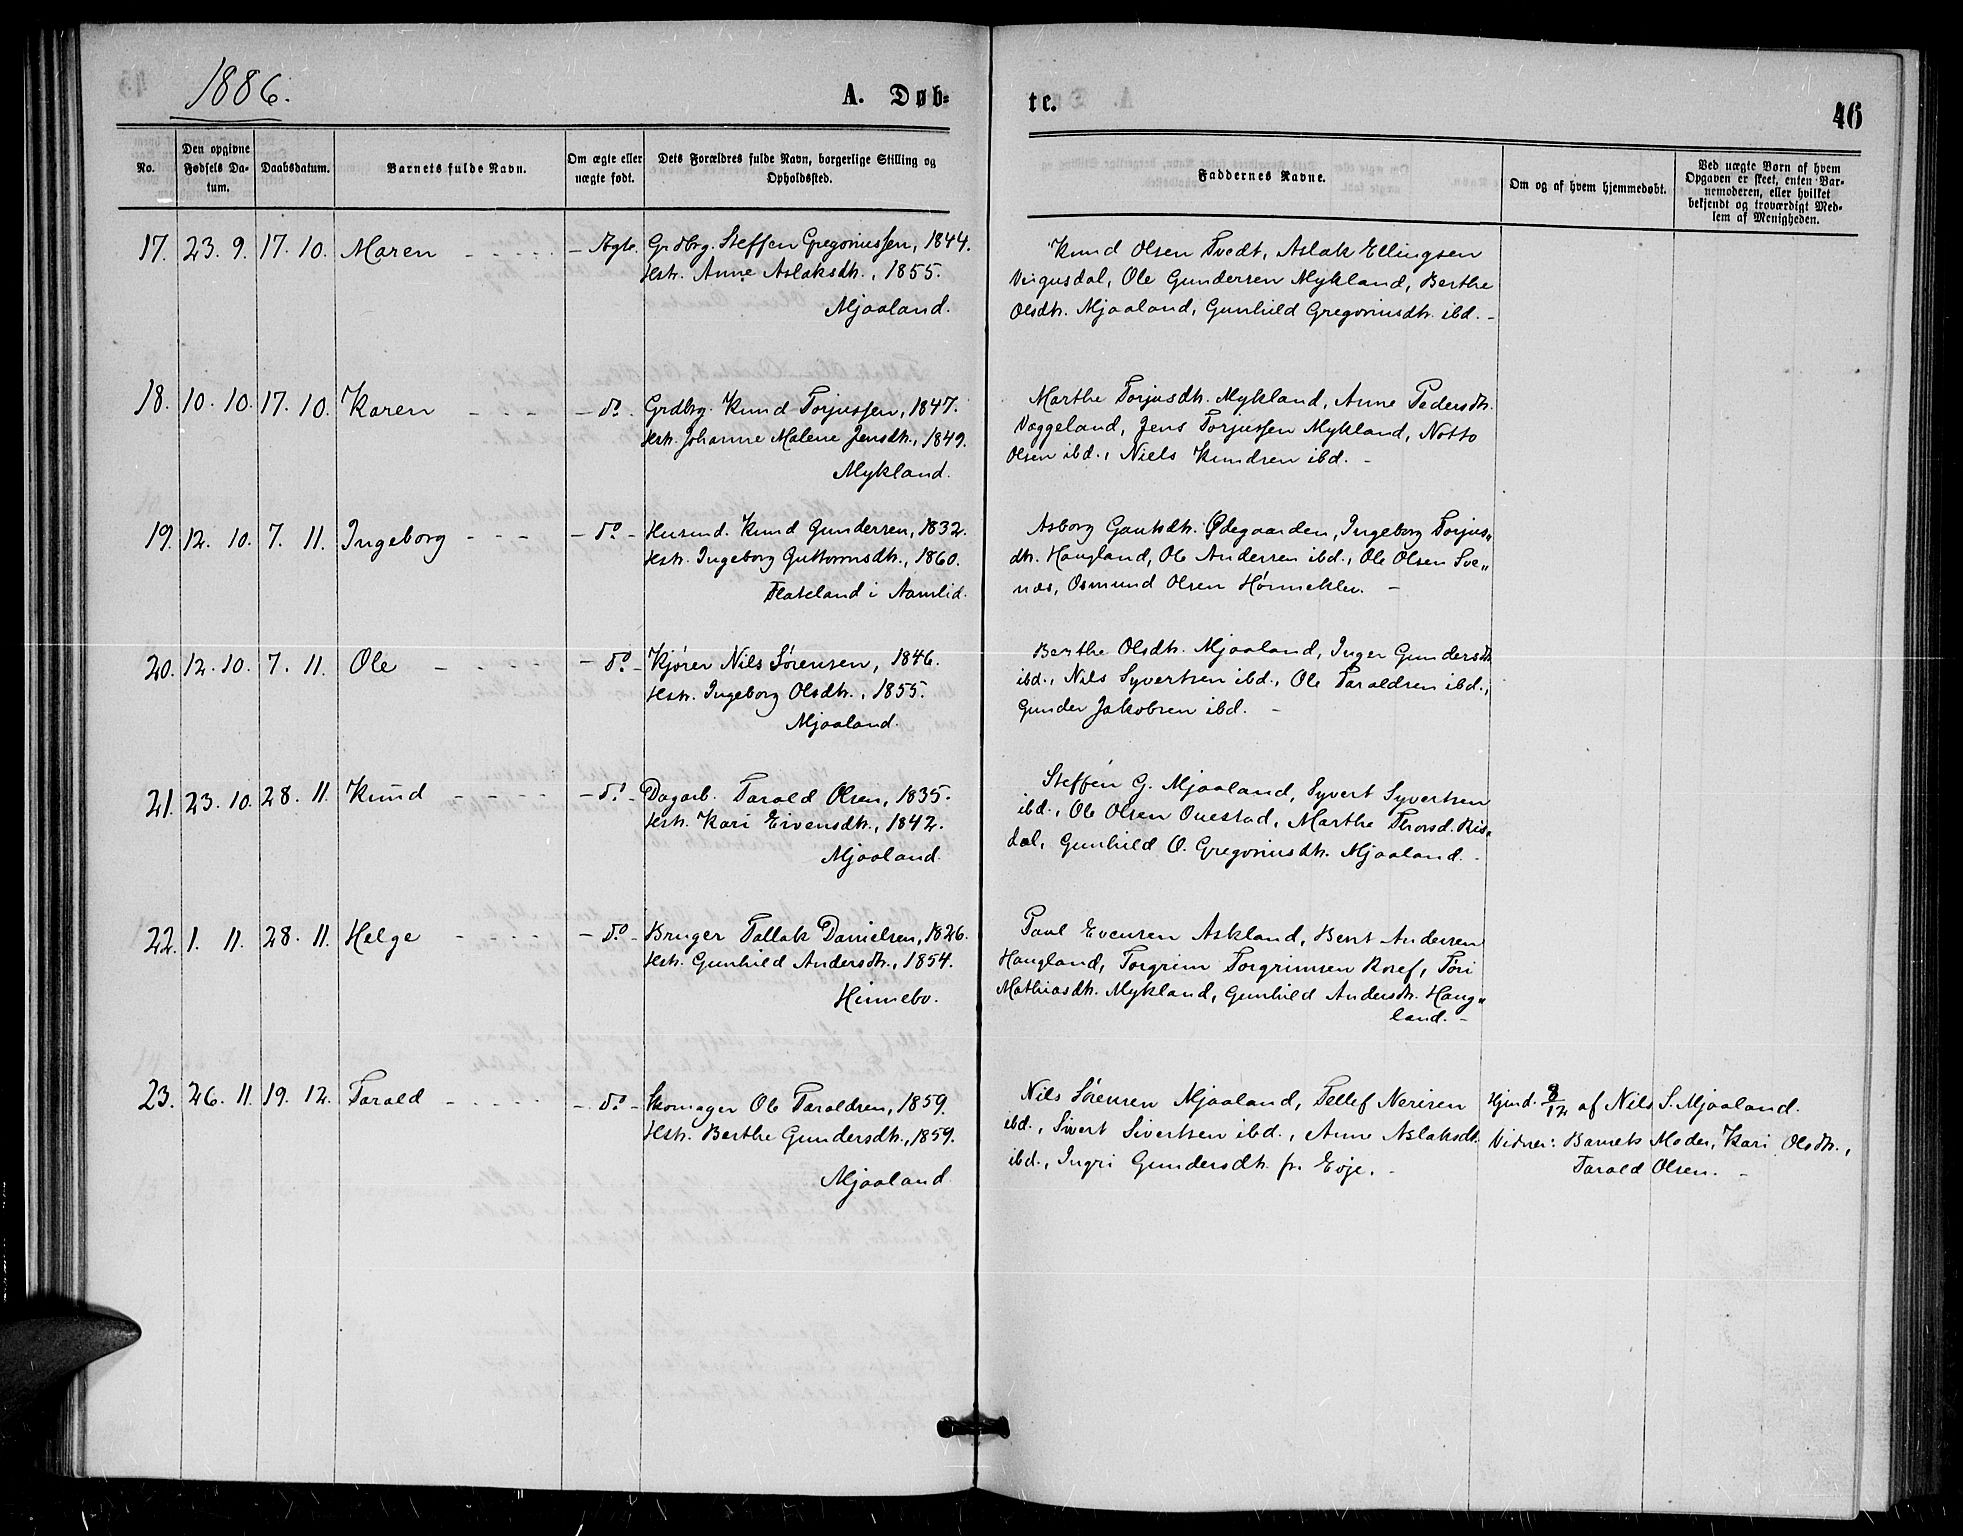 1886.
A. Døb-
te.
46
No.
Den opgivne
Fødsels Da-
tum.
Daabsdatum.
Barnets fulde Navn.
Om ægte eller
uægte født.
Dets Forældres fulde Navn, borgerlige Stilling og
Opholdssted.
Faddernes Navne.
Om og af hvem hjemmedøbt.
Ved uægte Børn af hvem
Opgaven er skeet, enten Bar-
nemoderen, eller hvilket
bekjendt og troværdigt Med-
lem af Menigheden.
17. 23. 9. 17. 10. Maren - - - - - - Ægte. Grdbrg. Steffen Gregoriussen, 1844.
Hstr. Anne Aslaksdtr., 1855.
Mjaaland.
Knud Olsen Tvedt, Aslak Ellingsen
Vegusdal, Ole Gundersen Mykland, Berthe
Olsdtr. Mjaaland, Gunhild Gregoriusdtr. ibd. -
18. 10. 10. 17. 10. Karen - - - - - do. Grdbrg. Knud Torjussen, 1847.
Hstr. Johanne Malene Jensdtr., 1849.
Mykland.
Marthe Torjusdtr. Mykland, Anne Pedersdtr.
Væggeland, Jens Torjussen Mykland, Notto
Olsen ibd., Niels Knudsen ibd. -
19. 12. 10. 7. 11. Ingeborg - - - - - do - Husmd. Knud Gundersen, 1832.
Hstr. Ingeborg Guttormsdtr., 1860.
Flateland i Aamlid.
Asborg Gautsdtr. Ødegaarden, Ingeborg Torjus„
dtr. Haugland, Ole Andersen ibd., Ole Olsen Sve„
næs, Osmund Olsen -
20. 12. 10. 7. 11. Ole - - - - - - do - Kjører Nils Sørensen, 1846.
Hstr. Ingeborg Olsdtr., 1855.
Mjaaland.
Berthe Olsdtr. Mjaaland, Inger Gundersdtr.
ibd., Nils Syvertsen ibd., Ole Taraldsen ibd.,
Gunder Jakobsen ibd. -
21. 23. 10. 28. 11. Knud - - - - - do - Dagarb. Tarald Olsen, 1835.
Hstr. Kari Eivensdtr., 1842.
Mjaaland.
Steffen G. Mjaaland, Syvert Syvertsen
ibd., Ole Olsen Ouestad, Marthe Thorsd. Ris„
dal, Gunhild O. Gregoriusdtr. Mjaaland. -
22. 1. 11. 28. 11. Helge - - - - - do - Bruger Tallak Danielsen, 1826.
Hstr. Gunhild Andersdtr., 1854.
Hinnebo.
Paul Evensen Askland, Bent Andersen
Haugland, Torgrim Torgrimsen Rosef, Tøri
Mathiasdtr. Mykland, Gunhild Andersdtr. Haug„
land. -
23. 26. 11. 19. 12. Tarald - - - - - do - Skomager Ole Taraldsen, 1859.
Hstr. Berthe Gundersdtr., 1859.
Mjaaland.
Nils Sørensen Mjaaland, Tellef Nerisen
ibd., Sivert Sivertsen ibd., Anne Aslaksdtr.
ibd., Ingri Gundersdtr. fr. Evje. -
Hjmd. 8/12 af Nils S. Mjaaland.
Vidner: Barnets Moder, Kari Olsdtr.,
Tarald Olsen. -